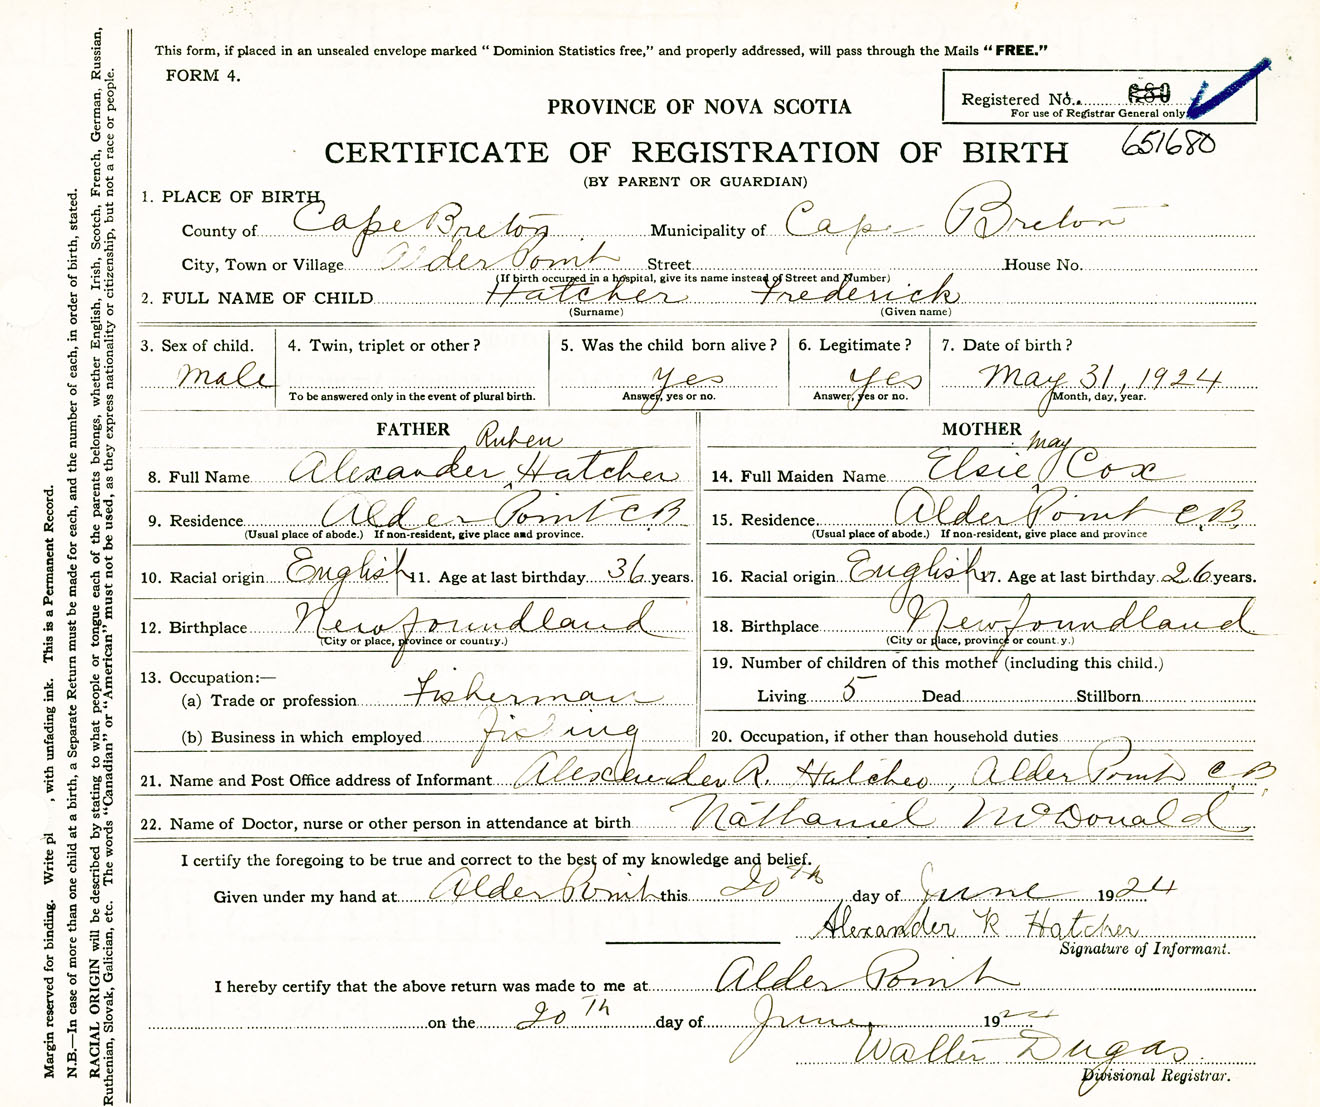 This form, if placed in an unsealed envelope marked "Dominion Statistics free," and properly addressed, will pass through the Mails "FREE."
FORM 4.
Registered No.
For use of Registrar General only.
651680
PROVINCE OF NOVA SCOTIA
CERTIFICATE OF REGISTRATION OF BIRTH
(BY PARENT OR GUARDIAN)
1. PLACE OF BIRTH
County of Cape Breton Municipality of Cape Breton
City, Town or Village Alder Point Street House No.
(If birth occurred in a hospital, give its name instead of Street and Number)
2. FULL NAME OF CHILD Hatcher Frederick
(Surname) (Given name)
3. Sex of child. 4. Twin, triplet or other? 5. Was the child born alive? 6. Legitimate? 7. Date of birth?
Male yes yes May 31, 1924
To be answered only in the event of plural birth. Answer, yes or no. Answer, yes or no. Month, day, year.
FATHER
Ruben
8. Full Name Alexander ^ Hatcher
9. Residence Alder Point C B
(Usual place of abode.) If non-resident, give place and province.
10. Racial origin English 11. Age at last birthday 36 years.
12. Birthplace Newfoundland
(City or place, province or country.)
13. Occupation:—
(a) Trade or profession Fisherman
(b) Business in which employed fishing
MOTHER
may
14. Full Maiden Name Elsie ^ Cox
15. Residence Alder Point C.B.
(Usual place of abode.) If non-resident, give place and province
16. Racial origin English 17. Age at last birthday 26 years.
18. Birthplace Newfoundland
(City or place, province or country.)
19. Number of children of this mother (including this child.)
Living 5 Dead Stillborn
20. Occupation, if other than household duties
21. Name and Post Office address of Informant Alexander R. Hatcher, Alder Point C B,
22. Name of Doctor, nurse or other person in attendance at birth Nathaniel McDonald
I certify the foregoing to be true and correct to the best of my knowledge and belief.
Given under my hand at Alder Point this 20th day of June 1924
Alexander R Hatcher
Signature of Informant.
I hereby certify that the above return was made to me at Alder Point
on the 20th day of June 19
Walter Dugas
Divisional Registrar.
Margin reserved for binding. Write pl , with unfading ink. This is a Permanent Record.
N.B.—In case of more than one child at a birth, a Separate Return must be made for each, and the number of each, in order of birth, stated.
RACIAL ORIGIN will be described by stating to what people or tongue each of the parents belongs, whether English, Irish, Scotch, French, German, Russian,
Ruthenian, Slovak, Galician, etc. The words "Canadian" or "American" must not be used, as they express nationality or citizenship, but not a race or people.